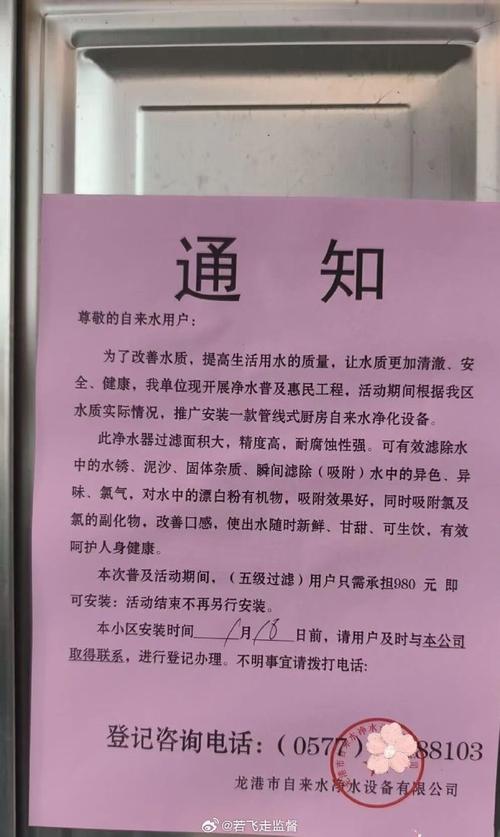 通 知
尊敬的自来水用户：
为了改善水质，提高生活用水的质量，让水质更加清澈、安
全、健康，我单位现开展净水普及惠民工程，活动期间根据我区
水质实际情况，推广安装一款管线式厨房自来水净化设备。
此净水器过滤面积大，精度高，耐腐蚀性强。可有效滤除水
中的水锈、泥沙、固体杂质、瞬间滤除（吸附）水中的异色、异
味、氯气，对水中的漂白粉有机物，吸附效果好，同时吸附氯及
氯的副化物，改善口感，使出水随时新鲜、甘甜、可生饮，有效
呵护人身健康。
本次普及活动期间，（五级过滤）用户只需承担980 元 即
可安装：活动结束不再另行安装。
本小区安装时间 1月18 日前，请用户及时与本公司
取得联系，进行登记办理。不明事宜请拨打电话:
登记咨询电话：（0577） 88103
龙港市自来水净水设备有限公司
@若飞走监督